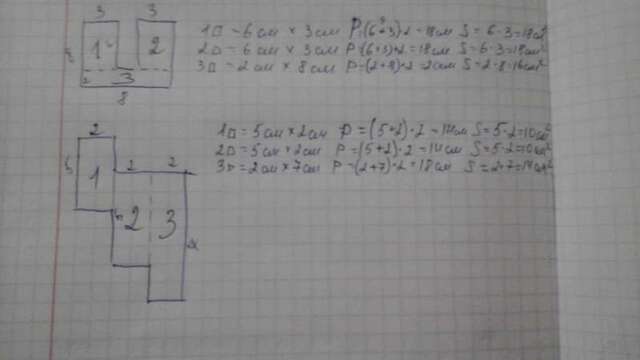 3 3
1 2
3
8
1□ = 6 см × 3 см P=(6+3)·2=18см S=6·3=18см²
2□ = 6 см × 3 см P=(6+3)·2=18см S=6·3=18см²
3□ = 2 см × 8 см P=(2+8)·2=20см S=2·8=16см²
2
1
2 2
2 3
1□ = 5 см × 2 см P=(5+2)·2=14см S=5·2=10см²
2□ = 5 см × 2 см P=(5+2)·2=14см S=5·2=10см²
3□ = 2 см × 7 см P=(2+7)·2=18см S=2·7=14см²